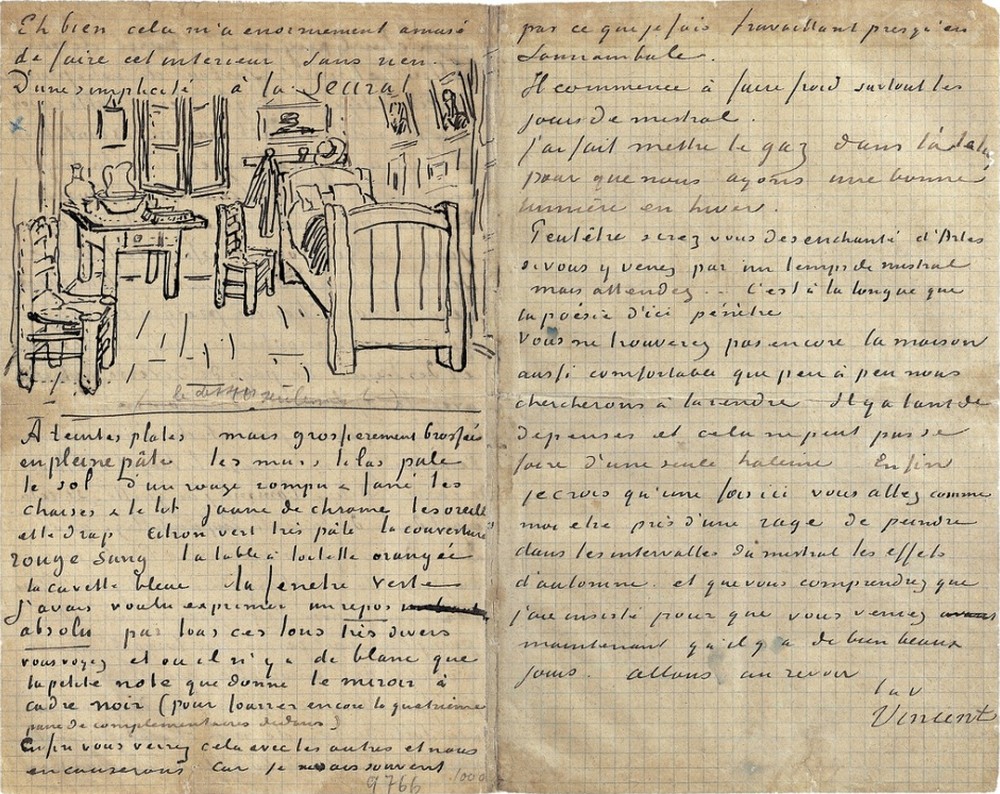 Eh bien cela m'a enormement amusé
de faire cet interieur sans rien.
D'une simplicité à la Seurat
le dessin seulement
A teintes plates mais grossierement brossées
en pleine pâte les murs lilas pale
le sol d'un rouge rompu & fané les
chaises & le lit jaune de chrome les oreillers
et le drap citron vert très pâle la couverture
rouge sang la table à toilette orangée
la cuvette bleue la fenetre verte
J'avais voulu exprimer un repos
absolu par tous ces tons très divers
vous voyez et ou il n'y a de blanc que
la petite note que donne le miroir à
cadre noir (pour fourrer encore la quatrieme
paire de complementaires dedans)
Enfin vous verrez cela avec les autres et nous
en causerons car je ne sais souvent
9766
1000
pas ce que je fais travaillant presqu'en
somnambule.
Il commence à faire froid surtout les
jours de mistral.
J'ai fait mettre le gaz dans l'atelier
pour que nous ayons une bonne
lumière en hiver.
Peutêtre serez vous desenchanté d'Arles
si vous y venez par un temps de mistral
mais attendez... C'est à la longue que
la poésie d'ici pénètre
Vous ne trouverez pas encore la maison
aussi comfortable que peu à peu nous
chercherons à la rendre Il y a tant de
depenses et cela ne peut pas se
faire d'une seule haleine Enfin
je crois qu'une fois ici vous allez comme
moi etre pris d'une rage de peindre
dans les intervalles du mistral les effets
d'automne. et que vous comprendrez que
j'aie insisté pour que vous veniez
maintenant qu'il y a de bien beaux
jours. allons au revoir
t.a.v
Vincent